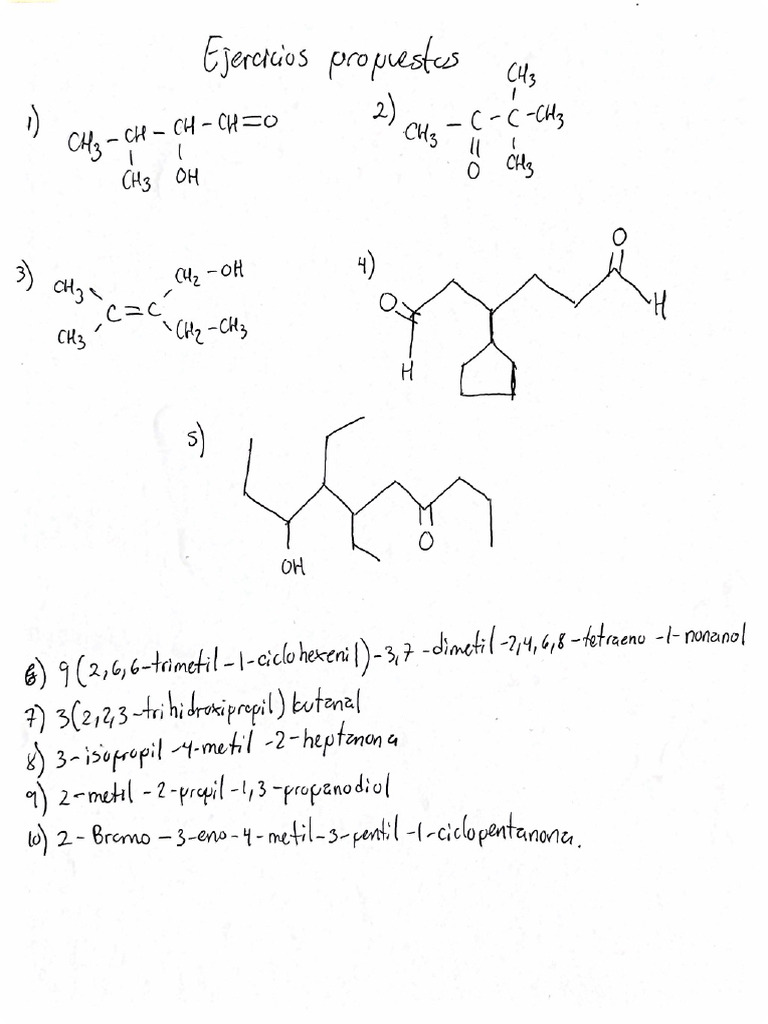 Ejercicios propuestos
1) CH3 - CH - CH - CH = O
CH3 OH
2) CH3 - C - C - CH3
CH3
O CH3
3) CH3 CH2 - OH
C = C
CH3 CH2 - CH3
4) O H O H
5) OH O
6) 9(2,6,6-trimetil-1-ciclohexenil)-3,7-dimetil-2,4,6,8-tetraeno-1-nonanol
7) 3(2,2,3-trihidroxipropil) butanal
8) 3-isopropil-4-metil-2-heptanona
9) 2-metil-2-propil-1,3-propanodiol
10) 2-Bromo-3-eno-4-metil-3-pentil-1-ciclopentanona.